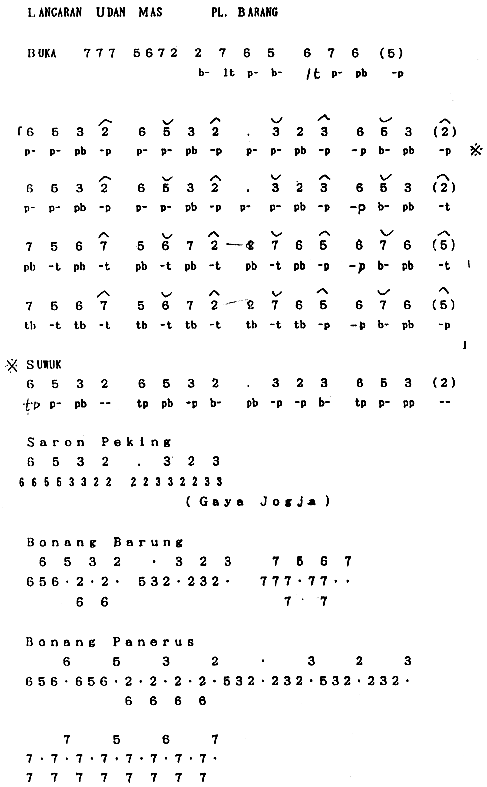 LANCARAN UDAN MAS PL. BARANG
BUKA 7 7 7 5 6 7 2 2 7 6 5 6 7 6 (5)
b- lt p- b- lt p- pb -p
6 5 3 2 6 5 3 2 . 3 2 3 6 5 3 (2)
p- p- pb -p p- p- pb -p p- p- pb -p -p b- pb -p ※
6 5 3 2 6 5 3 2 . 3 2 3 6 5 3 (2)
p- p- pb -p p- p- pb -p p- p- pb -p -p b- pb -t
7 5 6 7 5 6 7 2 — 2 7 6 5 6 7 6 (5)
pb -t pb -t pb -t pb -t pb -t pb -p -p b- pb -t
7 5 6 7 5 6 7 2 — 2 7 6 5 6 7 6 (5)
tb -t tb -t tb -t tb -t tb -t tb -p -p b- pb -p
※ SUWUK
6 5 3 2 6 5 3 2 . 3 2 3 6 5 3 (2)
tp p- pb -- tp pb -p b- pb -p -p b- tp p- pp --
Saron Peking
6 5 3 2 . 3 2 3
66553322 22332233
(Gaya Jogja)
Bonang Barung
6 5 3 2 · 3 2 3 7 5 6 7
656·2·2· 532·232· 777·77··
6 6 7 7
Bonang Panerus
6 5 3 2 · 3 2 3
656·656·2·2·2·2·532·232·532·232·
6 6 6 6
7 5 6 7
7·7·7·7·7·7·7·7·
7 7 7 7 7 7 7 7